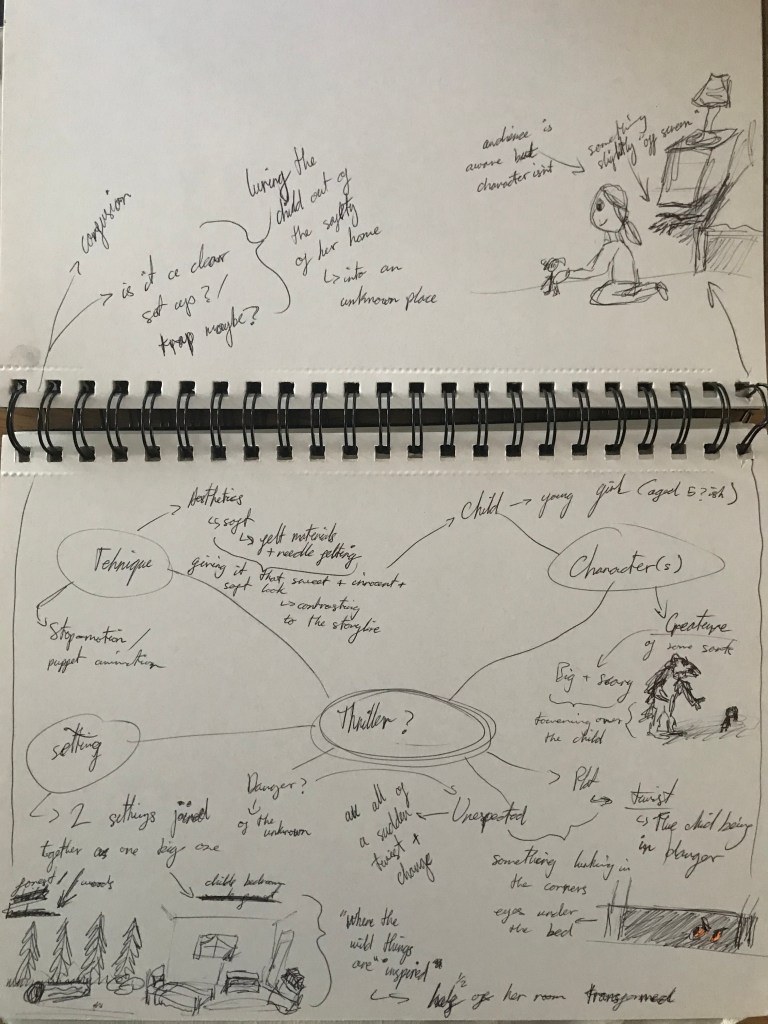 audience is
aware but
character isn't
something
slightly "off screen"
confusion
is it a clear
set up?/
trap maybe?
luring the
child out of
the safety
of her home
↳ into an
unknown place
Aesthetics
↳ soft
↳ felt materials
+ needle felting
giving it that sweet + innocent +
soft look
↳ contrasting
to the storyline
Tehnique
Stop-motion/
puppet animation
Child → young girl (aged 5?ish)
Character(s)
Creature
of some sort
Big + scary
towering over
the child
Thriller?
setting
↳ 2 settings joined
together as one big one
woods
Danger?
of the
unknown
Unexpected
all of
a sudden
twist +
change
Plot
twist
↳ The child being
in danger
something lurking in
the corners
eyes under
the bed
"Where the
wild things
are" "inspired"
↳ half 1/2 of her room transformed